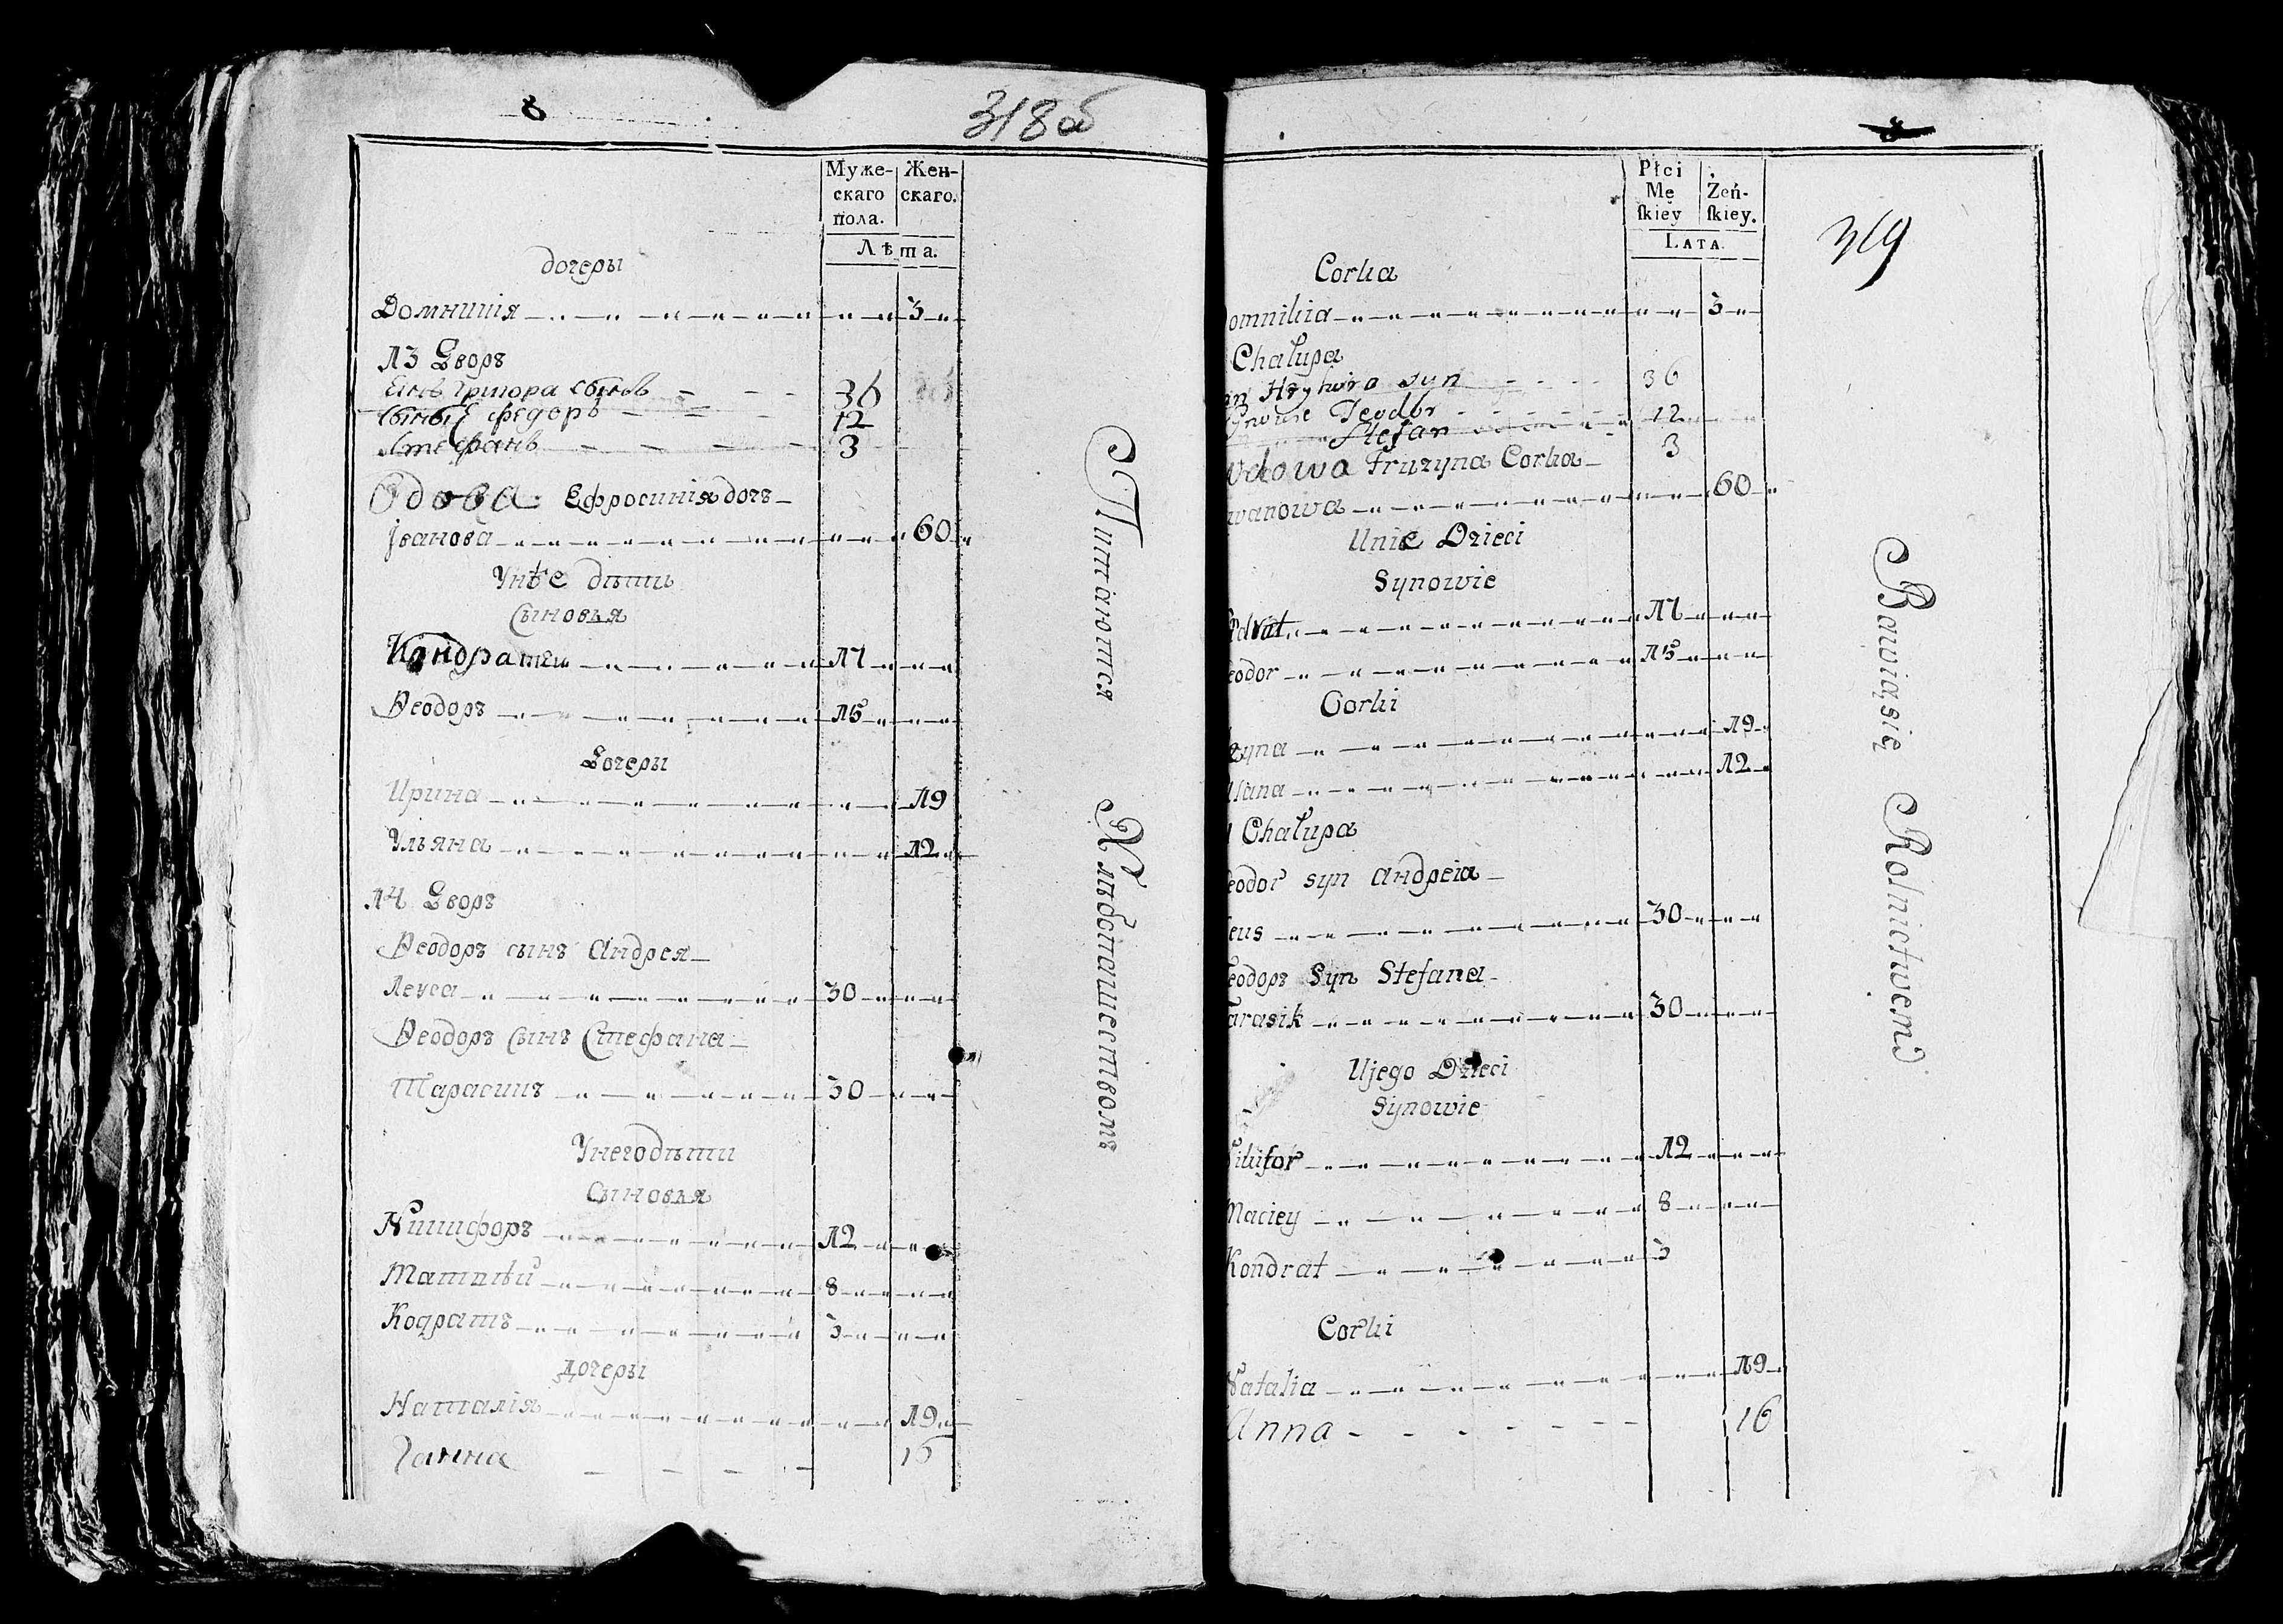 8
318об
Муже-
скаго
пола.
Жен-
скаго.
Лѣта.
дочеры
Домникія 3
13 Дворъ
Григора сынъ 36
Сыны Федоръ 12
Стефанъ 3
Вдова Ефросинія дочъ
Іванова 60
Унѣе дѣти
Сыновья
Кондратеи 17
Ѳеодоръ 15
Дочеры
Ирина 19
Ульяна 12
14 Дворъ
Ѳеодоръ сынъ Андрея
Леуса 30
Ѳеодоръ Сынъ Стефана
Тарасикъ 30
Унего дѣти
Сыновья
Никифоръ 12
Маттѣй 8
Кодратъ 3
Дочеры
Наталія 19
Ганна 16
Питаются Хлѣбопашествомъ
8
319
Płci
Mę
skiey
Żeń-
skiey.
LATA.
Corka
omnikia 3
Chałupa
Hryhora syn 36
Teodor 12
Stefan 3
Wdowa Fruzyna Corka
wanowa 60
Unie Dzieci
Synowie
drat 17
eodor 15
Corki
yna 19
lana 12
Chałupa
eodor syn Андреia
eus 30
eodoръ Syn Stefana
arasik 30
Ujego Dzieci
Synowie
ikifor 12
Maciey 8
Kondrat 3
Corki
Natalia 19
Anna 16
Bawiąsię Rolnictwem